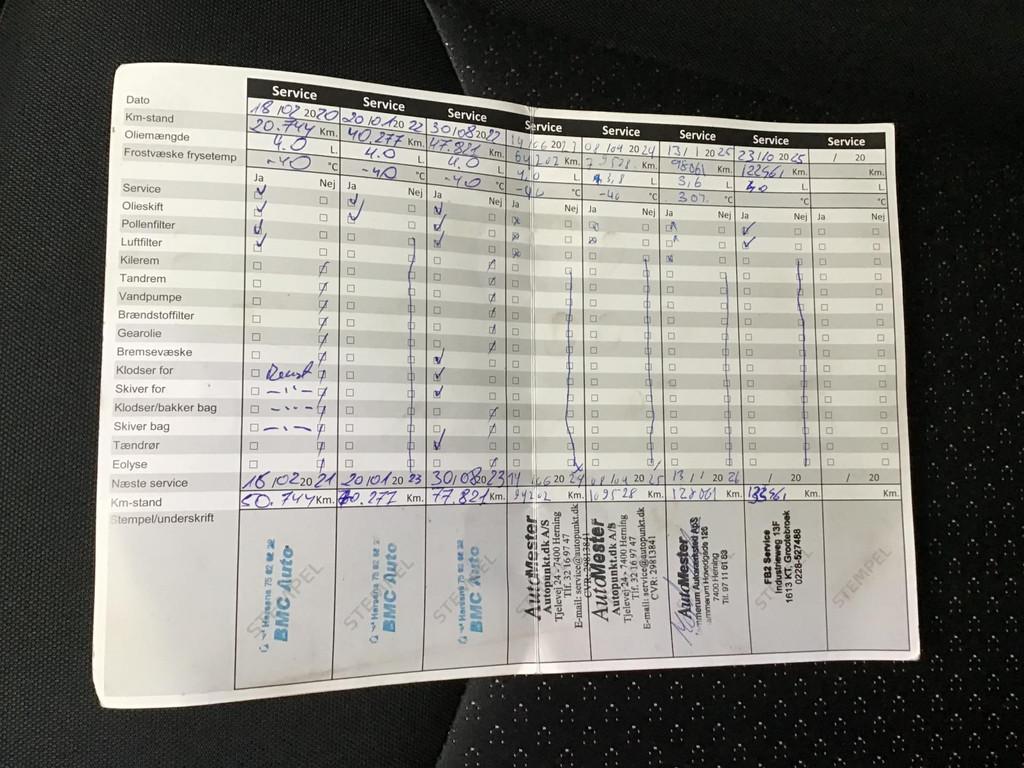 Service Service Service Service Service Service Service Service
Dato 18/02 2020 20/01 2022 30/08 2022 08/04 2024 13/1 2025 23/10 2025 / 20
Km-stand 20.744 Km. 40.277 Km. 47.821 Km. 64202 Km. 79528 Km. 98061 Km. 122961 Km. Km.
Oliemængde 4.0 L. 4.0 L. 4.0 L. 4,0 L 3,8 L 3,6 L L L
Frostvæske frysetemp -40 °C -40 °C -40 °C -40 °C -40 °C °C °C °C
Ja Nej Ja Nej Ja Nej Ja Nej Ja Nej Ja Nej Ja Nej Ja Nej
Service
Olieskift
Pollenfilter
Luftfilter
Kilerem
Tandrem
Vandpumpe
Brændstoffilter
Gearolie
Bremsevæske
Klodser for
Skiver for
Klodser/bakker bag
Skiver bag
Tændrør
Eolyse
Næste service 18/02 2021 20/01 20 23 30/08 2023 08/04 2025 13/1 2026 / 20 / 20
Km-stand 50.744 Km. 70.277 Km. 77.821 Km. 94202 Km. 109528 Km. 128061 Km. Km. Km.
Stempel/underskrift
BMC Auto
BMC Auto
BMC Auto
AutoMester
Autopunkt.dk A/S
Tjelevej 24 - 7400 Herning
Tlf. 32 16 97 47
E-mail: service@autopunkt.dk
CVR: 29813841
AutoMester
Autopunkt.dk A/S
Tjelevej 24 - 7400 Herning
Tlf. 32 16 97 47
E-mail: service@autopunkt.dk
CVR: 29813841
AutoMester
7400 Herning
Tlf. 97 11 61 63
FB2 Service
Industrieweg 13F
1613 KT. Grootebroek
0228-527488
STEMPEL